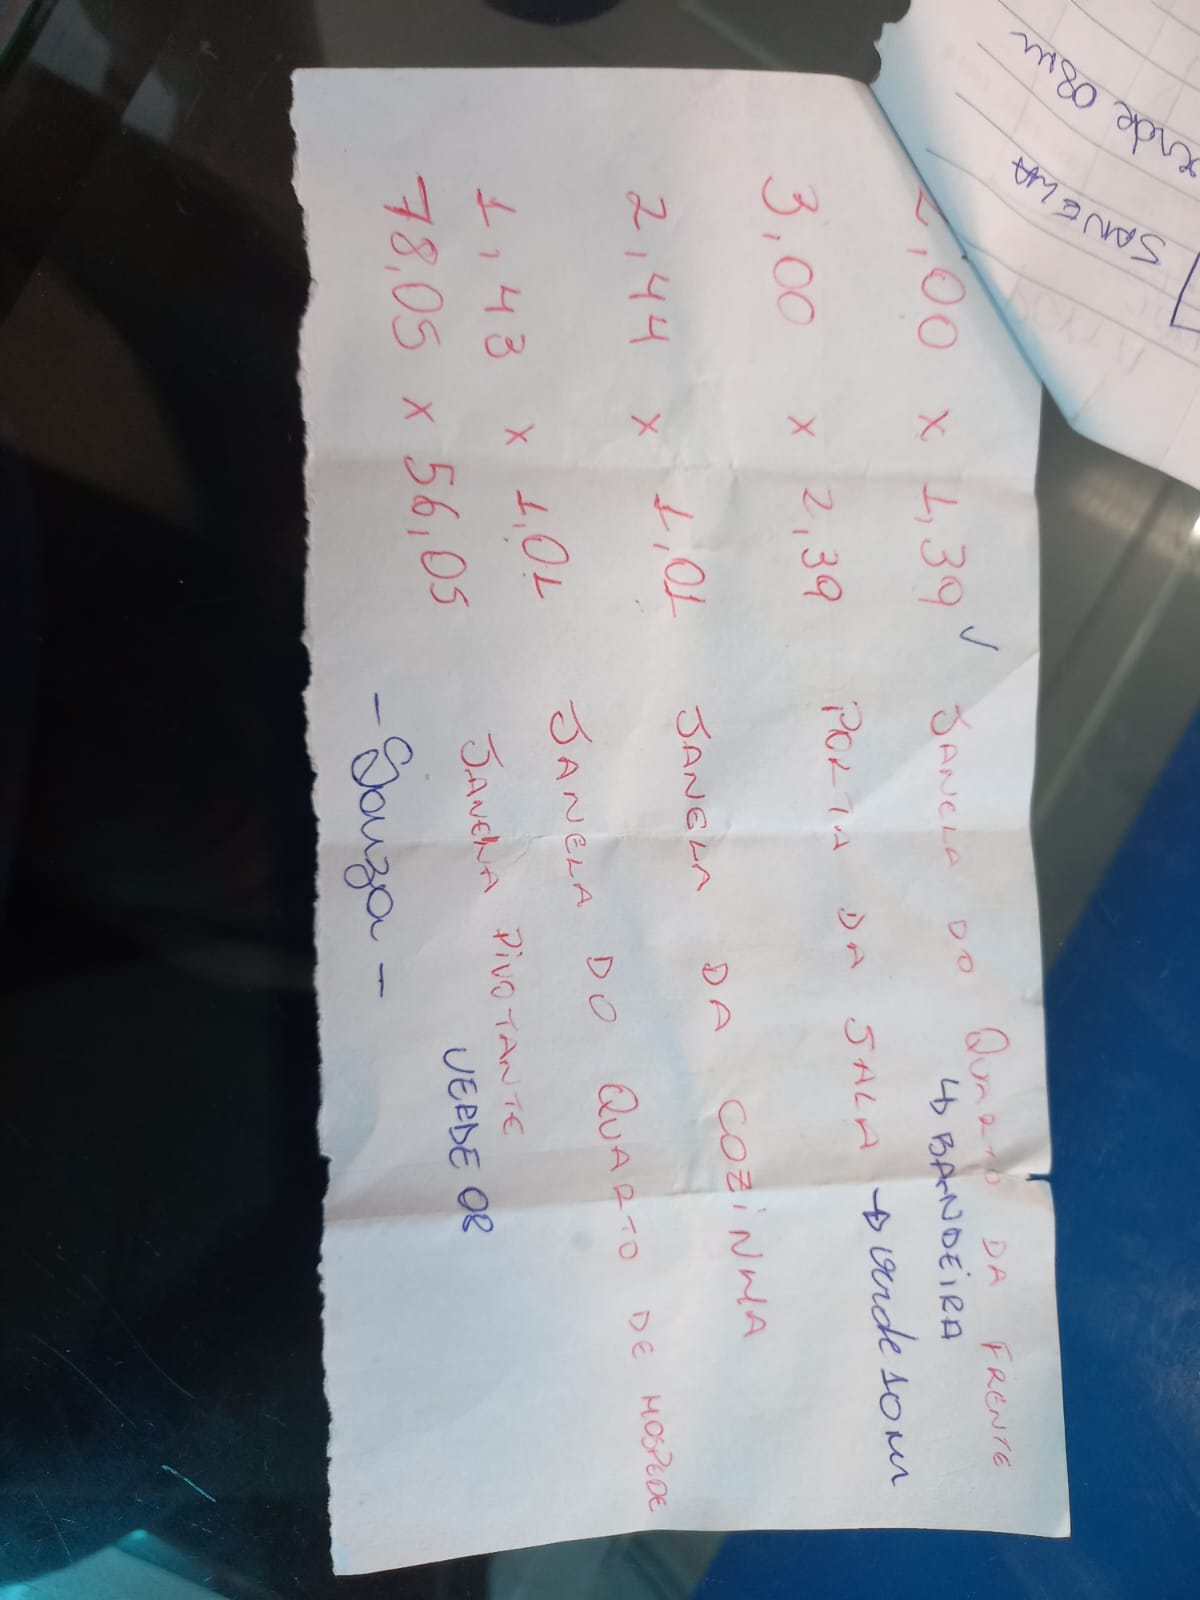 2,00 x 1,39 ✓ JANELA DO QUARTO DA FRENTE
↳ BANDEIRA
3,00 x 2,39 PORTA DA SALA → verde 10 mm
2,44 x 1,01 JANELA DA COZINHA
1,43 x 1,01 JANELA DO QUARTO DE HOSPEDE
78,05 x 56,05 JANELA PIVOTANTE
VERDE 08
- Souza -
JANELA
verde 08mm